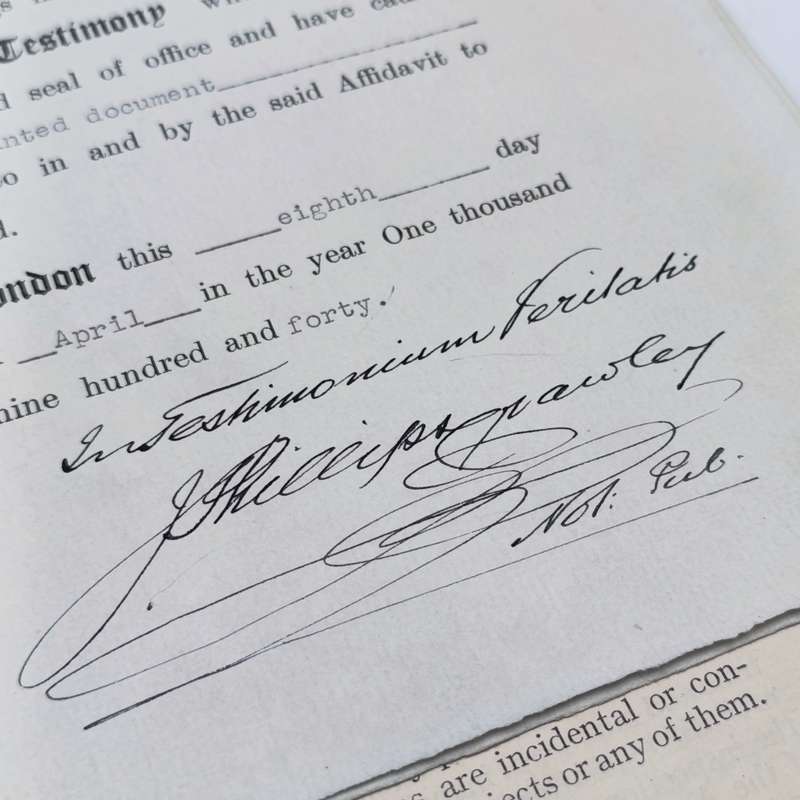 Testimony
seal of office and have
document
in and by the said Affidavit to
this eighth day
April in the year One thousand
hundred and forty.
In Testimonium Veritatis
J Phillips Crawley
Not. Pub.
are incidental or con-
or any of them.